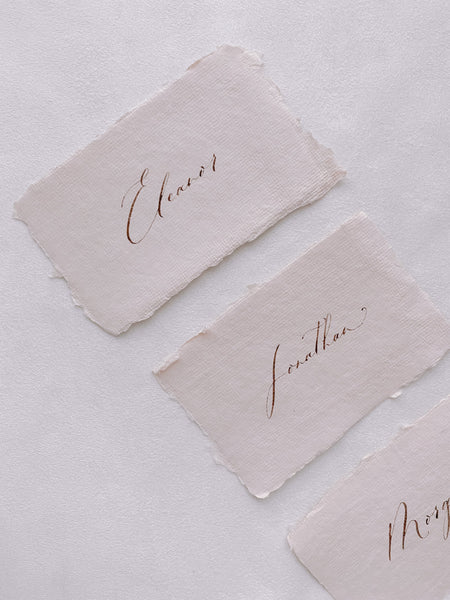 Eleanor
Jonathan
Morg